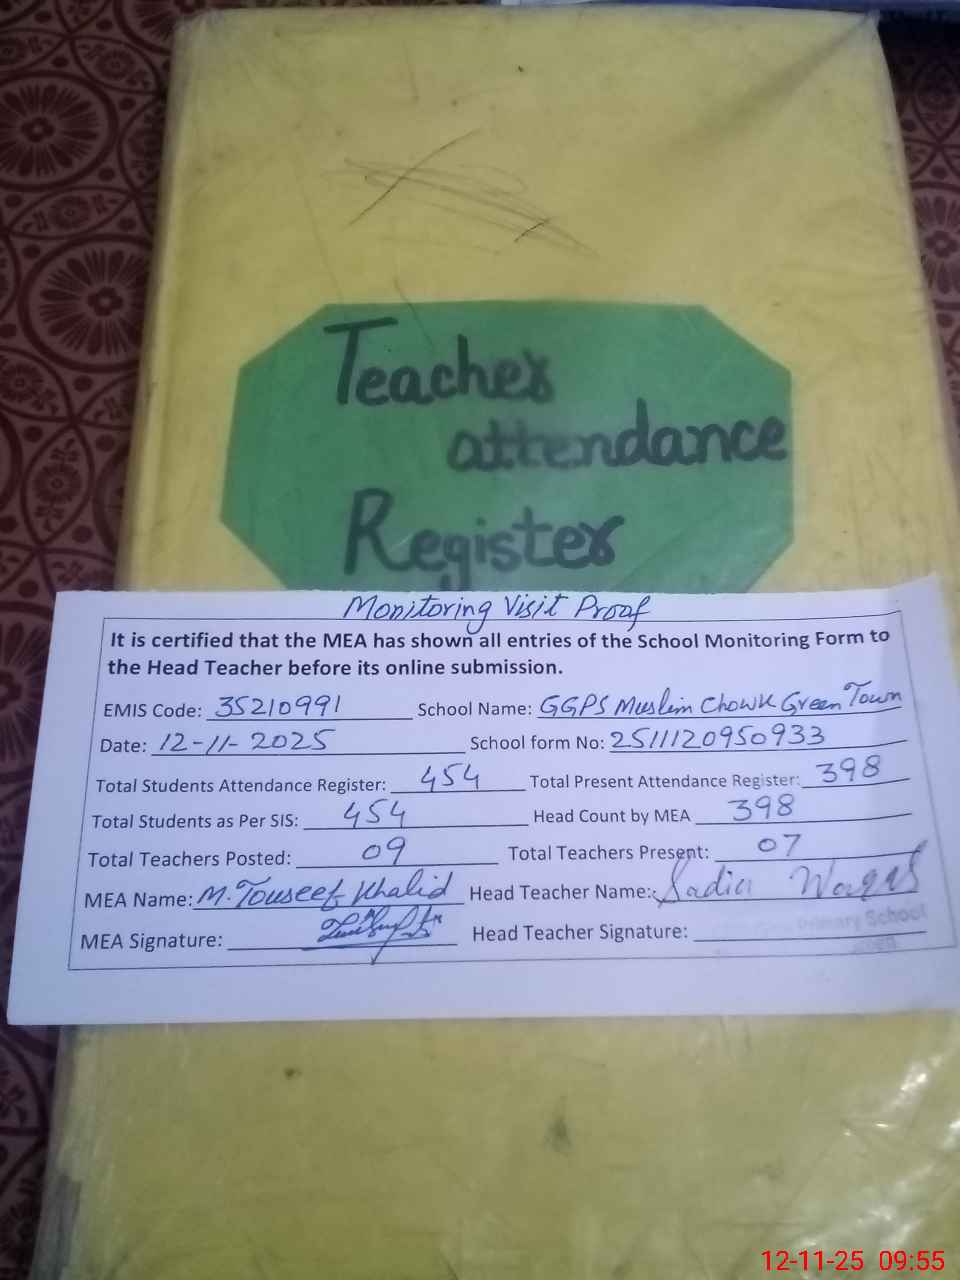 Teacher
attendance
Register
Monitoring Visit Proof
It is certified that the MEA has shown all entries of the School Monitoring Form to
the Head Teacher before its online submission.
EMIS Code: 35210991 School Name: GGPS Muslim Chowk Green Town
Date: 12-11-2025 School form No: 2511120950933
Total Students Attendance Register: 454 Total Present Attendance Register: 398
Total Students as Per SIS: 454 Head Count by MEA 398
Total Teachers Posted: 09 Total Teachers Present: 07
MEA Name: M. Touseef Khalid Head Teacher Name: Sadia Waqas
MEA Signature: Head Teacher Signature:
Primary School
12-11-25 09:55